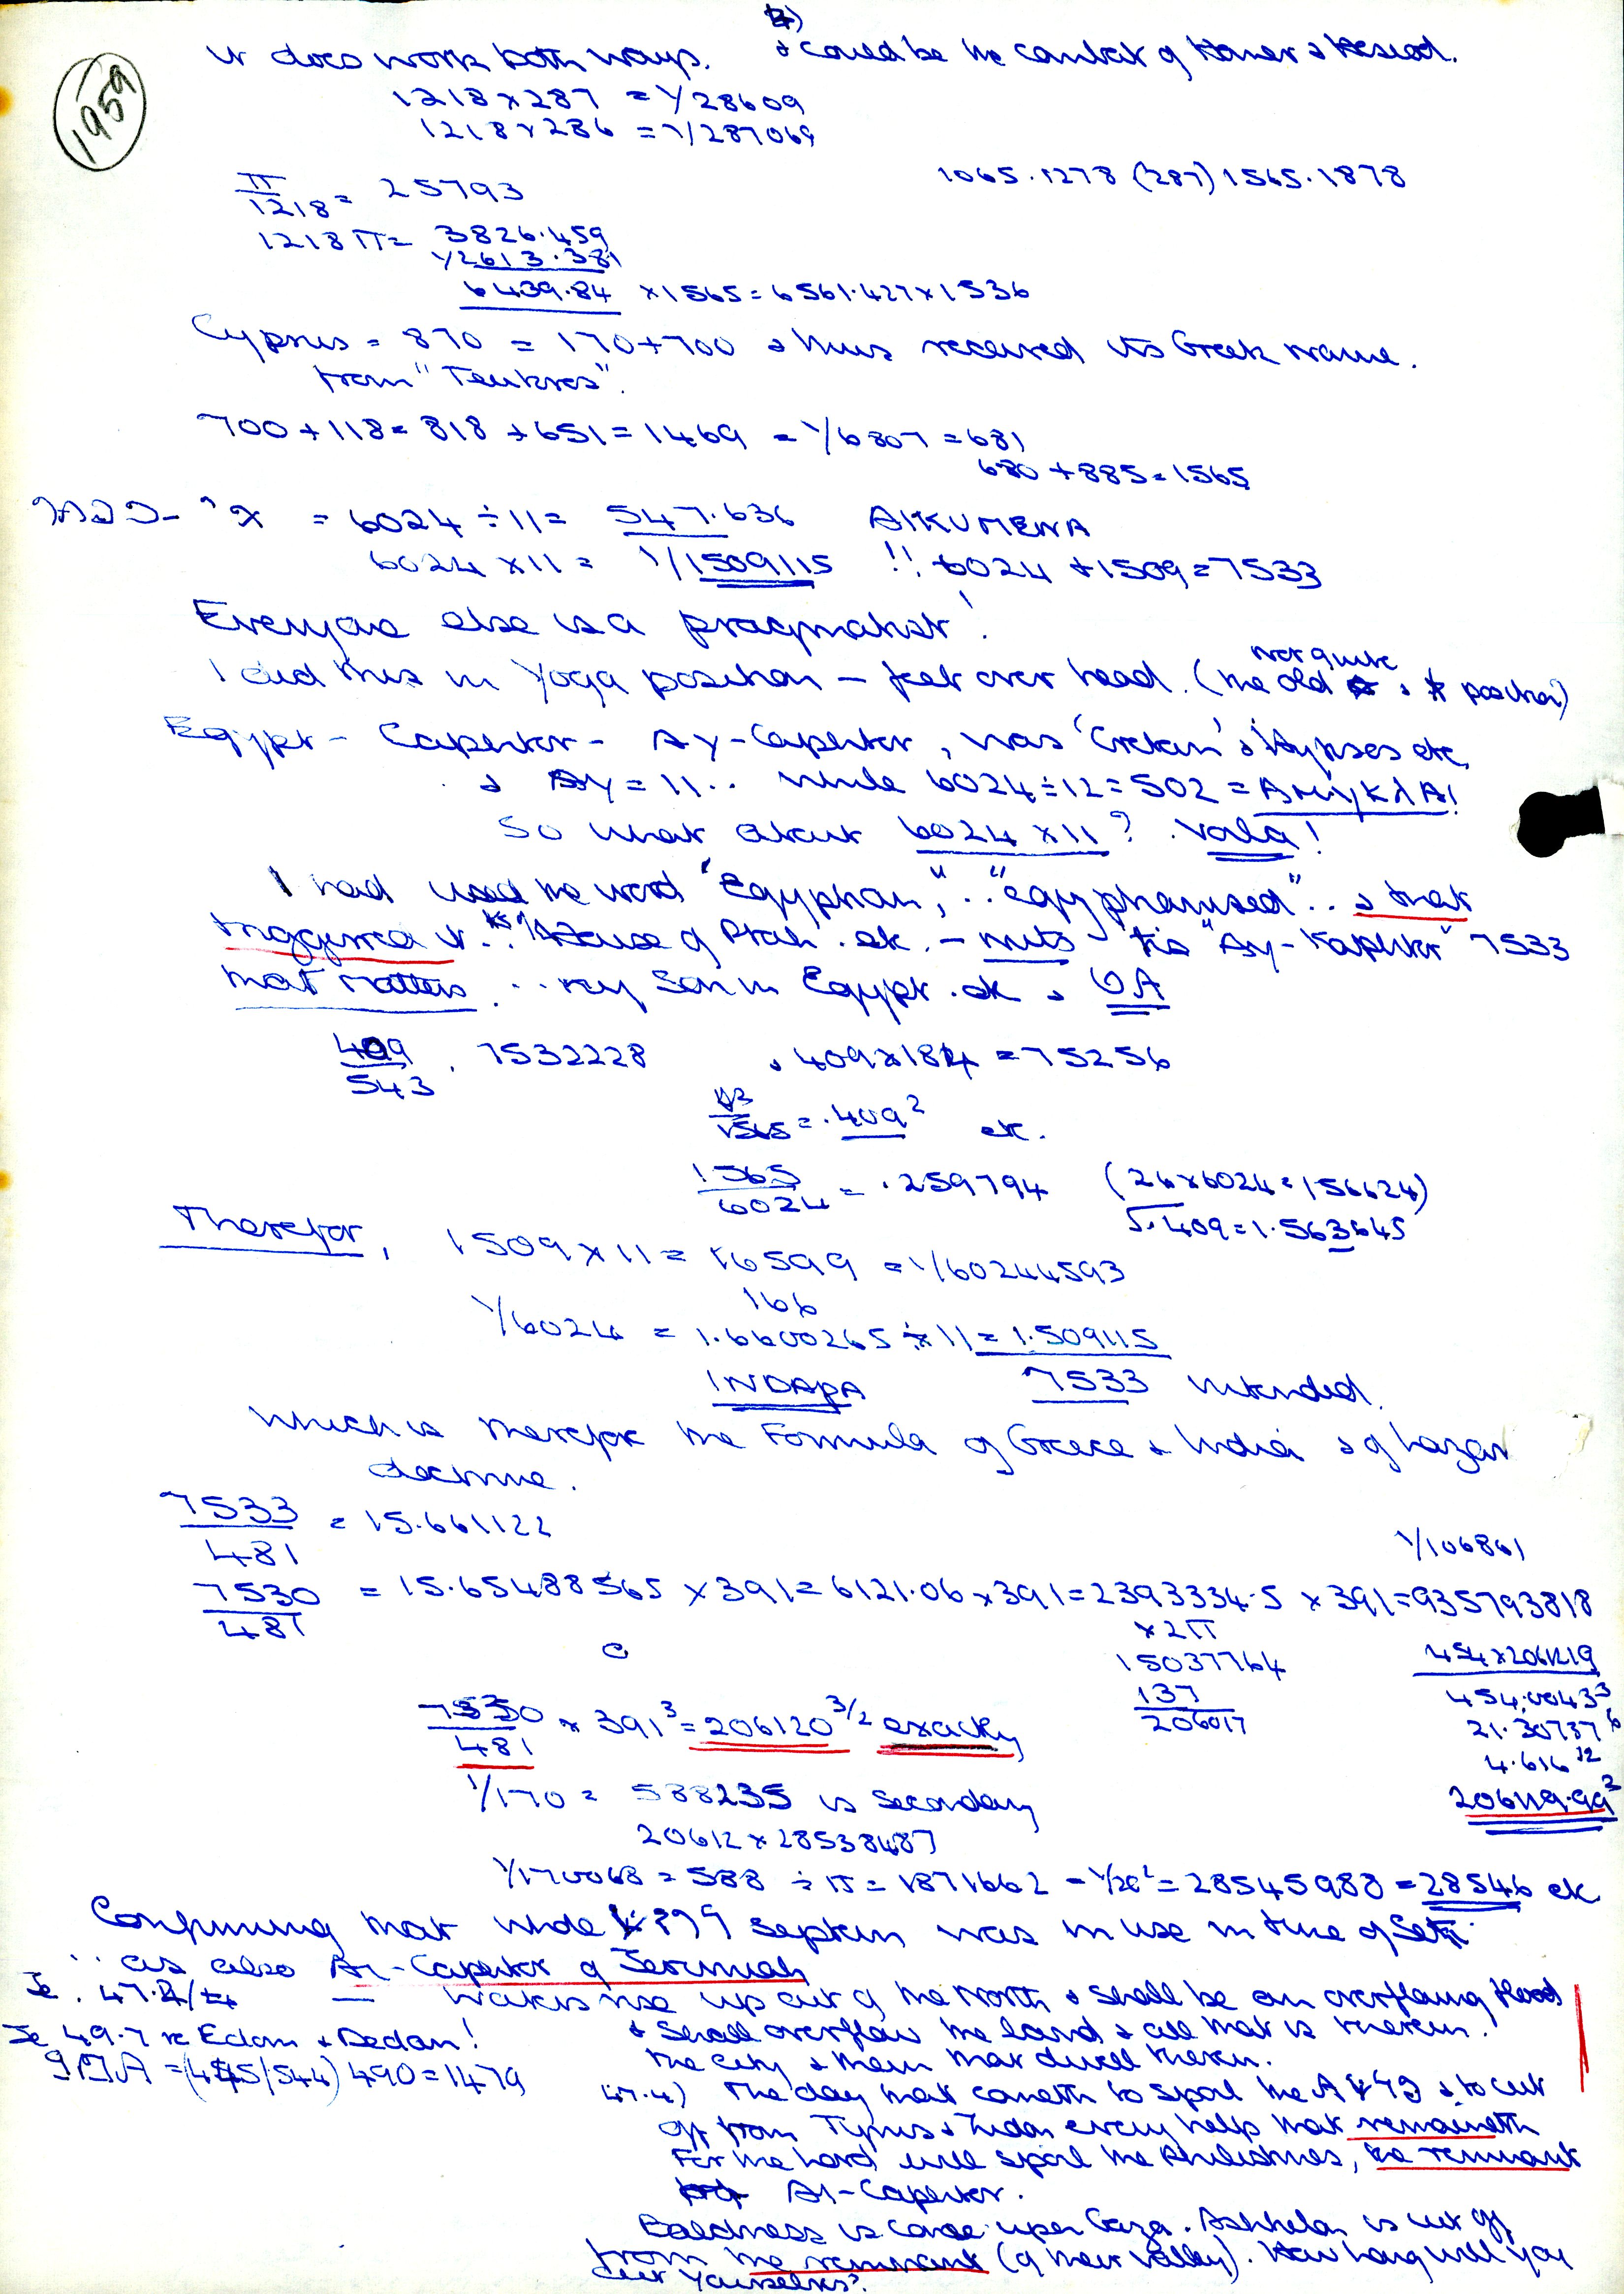 1959
It does work both ways. & could be the contest of Homer & Hesiod.
1218 x 287 = 1/28609
1218 x 286 = 1/287069
1065.1278 (287) 1565.1878
π/1218 = 25793
1218 π = 3826.459
1/2613.381
6439.84 x 1565 = 6561.427 x 1536
Cyprus = 870 = 170 + 700 & thus received its Greek name
from "Teukros".
700 + 118 = 818 + 651 = 1469 = 1/6807 = 681
680 + 885 = 1565
= 6024 ÷ 11 = 547.636 AIKUMENA
6024 x 11 = 1/1509115 !! 6024 + 1509 = 7533
Everyone else is a pragmatist!
I did this in Yoga position - feet over head. (not quite the old position)
Egypt - Caphtor - Ay-Caphtor, was 'Cretan' & Hyksos etc,
& Ay = 11.. while 6024 ÷ 12 = 502 = AMYKλAI
So what about 6024 x 11? Voila!
I had used the word "Egyptian", .. "egyptianised" .. & that
triggered it. "House of Ptah" etc. - nuts - 'tis "Ay-Kaphtor" 7533
that matters ... my Son in Egypt. etc &
409/543 . 7532228 , 409 x 184 = 75256
/1565 = .409² etc.
1565/6024 = .259794 (26 x 6024 = 156624)
√.409 = 1.563645
Therefor, 1509 x 11 = 16599 = 1/60244593
166
1/6024 = 1.6600265 ÷ 11 = 1.509115
INDAPA 7533 intended.
Which is therefor the Formula of Greece & India & of
doctrine.
7533/481 = 15.661122
1/106861
7530/481 = 15.65488565 x 391 = 6121.06 x 391 = 2393334.5 x 391 = 935793818
x 2π
15037764
137
206017
454 x 2061219
454.00433
21.30737⁶
4.616¹²
206119.99³
/481 x 391³ = 206120^3/2 exactly
1/170 = 588235 is secondary
20612 x 28538487
1/170068 = 588 ÷ π = 1871662 = 28545988 = 28546 etc
Confirming that whole system was in use in time of Seti
.. as also Ai-Caphtor of Jeremiah
Je. 47.2/4 - Waters rise up out of the North & shall be an overflowing flood
& shall overflow the land & all that is therein.
the city & them that dwell therein.
Je 49.7 re Edom & Dedan!
= (445/544) 490 = 1479
47.4) The day that cometh to spoil the & to cut
off from Tyrus & Zidon every help that remaineth
For the Lord will spoil the Philistines, the remnant
of Ai-Caphtor.
Baldness is come upon Gaza. Ashkelon is cut off
from the remnant (of their valley). How long will you
cut yourselves?